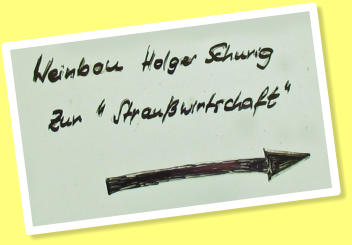 Weinbau Holger Schurig
Zur "Straußwirtschaft"